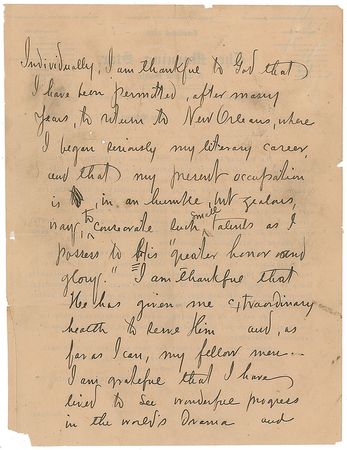 Individually, I am thankful to God that
I have been permitted, after many
years, to return to New Orleans, where
I began seriously my literary career,
and that my present occupation
is, in an humble, but zealous,
way, to consecrate such small talents as I
possess to His "greater honor and
glory." I am thankful that
He has given me extraordinary
health to serve Him and, as
far as I can, my fellow men...
I am grateful that I have
lived to see wonderful progress
in the world's drama and